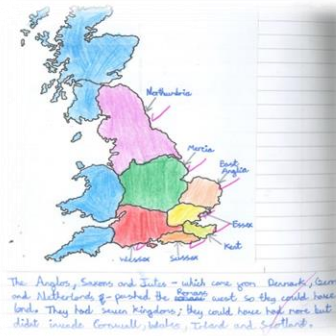 Northumbria
Mercia
East
Anglia
Essex
Kent
Wessex
Sussex
The Anglos, Saxons and Jutes - which came from Denmark,
and Netherlands - pushed the Romans west so they could have
land. They had seven kingdoms; they could have had more but
didt invade Cornwall, Wales, Irland and Scotland.